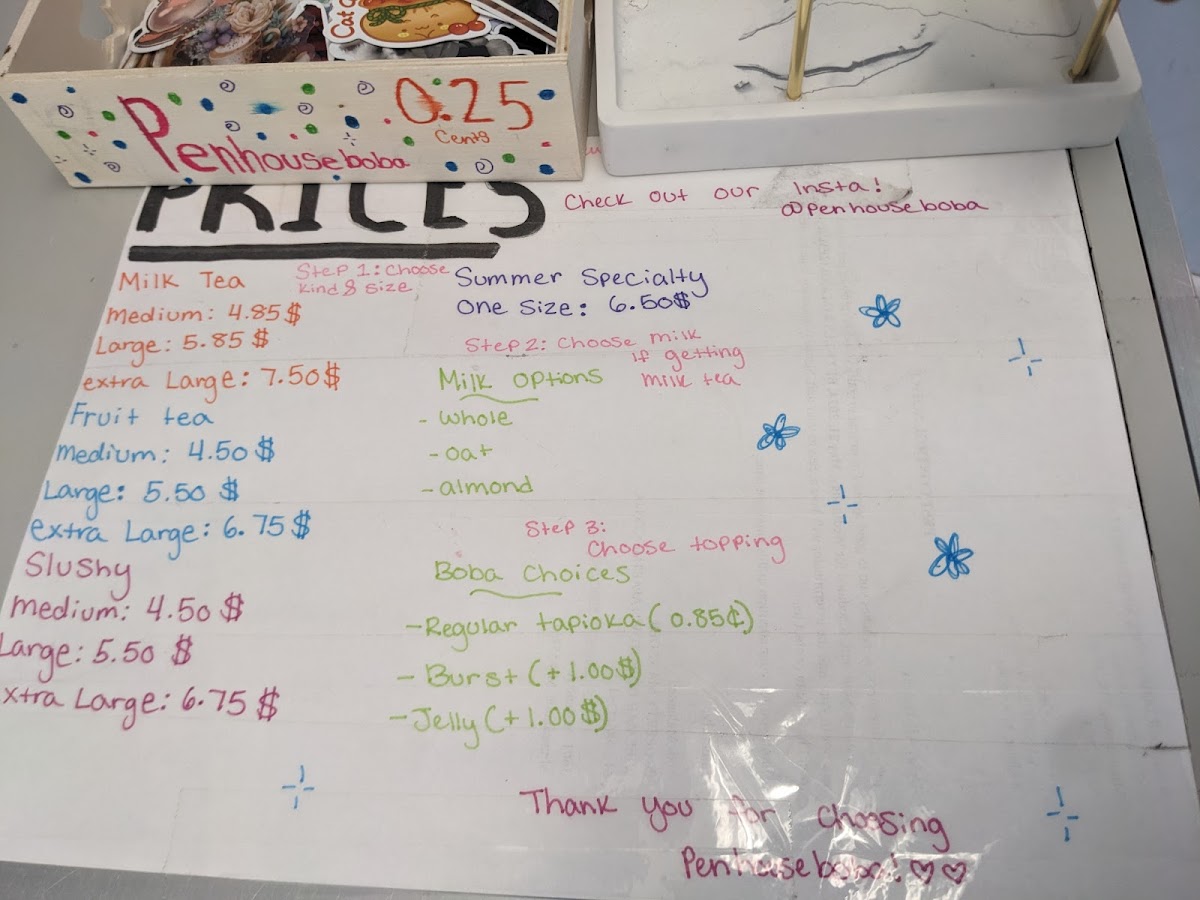 Cat
0.25
Cents
Penhouseboba
PRICES
Check out our Insta!
@penhouseboba
Milk Tea
Step 1: Choose
kind & size
Medium: 4.85$
Large: 5.85$
extra Large: 7.50$
Fruit tea
Medium: 4.50$
Large: 5.50 $
extra Large: 6.75$
Slushy
Medium: 4.50 $
Large: 5.50 $
xtra Large: 6.75 $
Summer Specialty
One Size: 6.50$
Step 2: Choose milk
if getting
milk tea
Milk options
- whole
- oat
- almond
Step 3:
Choose topping
Boba Choices
- Regular tapioka (0.85¢)
- Burst (+1.00$)
- Jelly (+1.00$)
Thank you for choosing
Penhouseboba! ♡♡